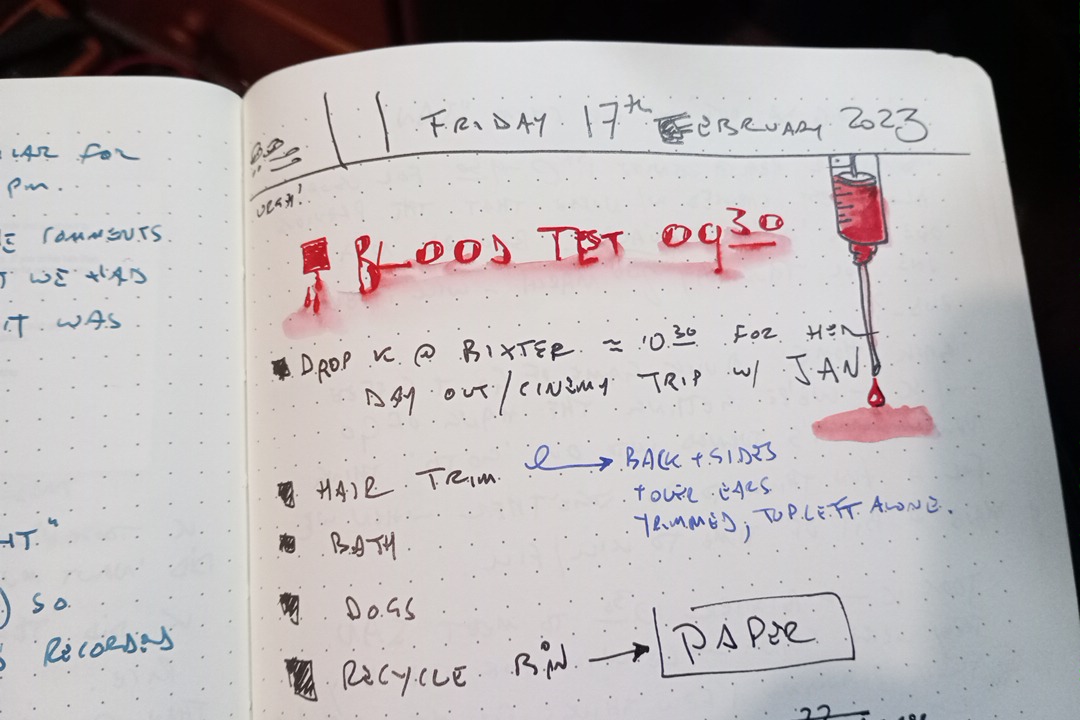 LAR FOR
PM.
E COMMENTS
T WE HAD
IT WAS
HT."
) SO
RECORDED
FRIDAY 17th FEBRUARY 2023
UGH!
BLOOD TEST 0930
DROP K @ BIXTER ≈ 1030 FOR HER
DAY OUT/CINEMY TRIP W/ JAN
HAIR TRIM → BACK + SIDES
+ OVER EARS
TRIMMED, TOP LEFT ALONE.
BATH
DOGS
RECYCLE BIN → PAPER